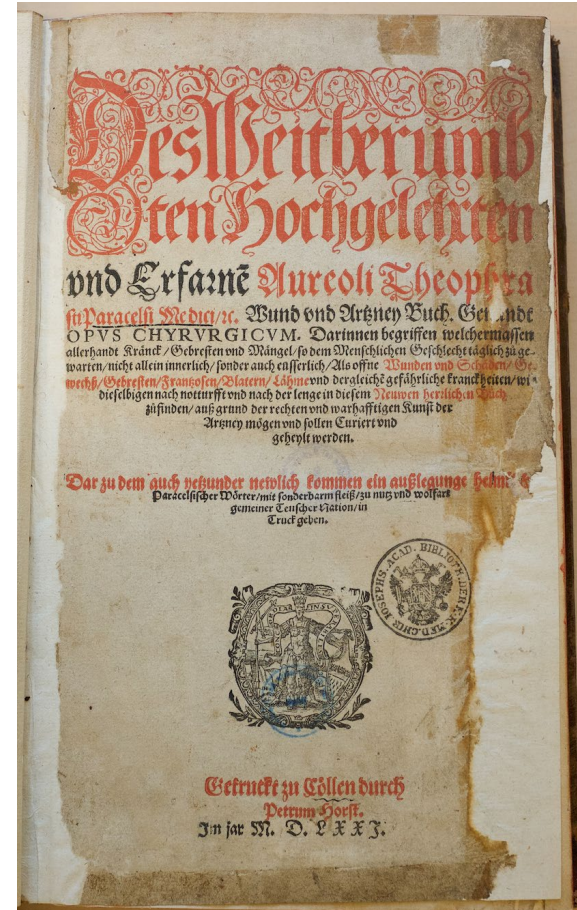 Des Weitberumb
ten Hochgelehrten
vnd Erfarnē Aureoli Theophra
sti Paracelsi Medici/ꝛc. Wund vnd Artzney Buch.
OPVS CHYRVRGICVM. Darinnen begriffen welchermassen
allerhandt Kranck/Gebresten vnd Mängel/so dem Menschlichen Geschlecht täglich zů ge-
warten/nicht allein innerlich/sonder auch eusserlich/Als offne Wunden vnd Schäden/Ge-
wechß/Gebresten/Frantzosen/Blatern/Lähme vnd dergleichē gefährliche kranckheiten/wi-
dieselbigen nach notturfft vnd nach der lenge in diesem Neuwen herrlichen Buch
zůfinden/auß grund der rechten vnd warhafftigen Kunst der
Artzney mögen vnd sollen Curiert vnd
geheylt werden.
Dar zu dem auch yetzunder newlich kommen ein außlegunge
Paracelsischer Wörter/mit sonderbarm fleiß/zu nutz vnd wolfart
gemeiner Teutscher Nation/in
Truck geben.
BIBLIOTH. DER K. K. MED. CHIR. JOSEPHS. ACAD.
Getruckt zu Cöllen durch
Petrum Horst.
Im jar M. D. LXXI.